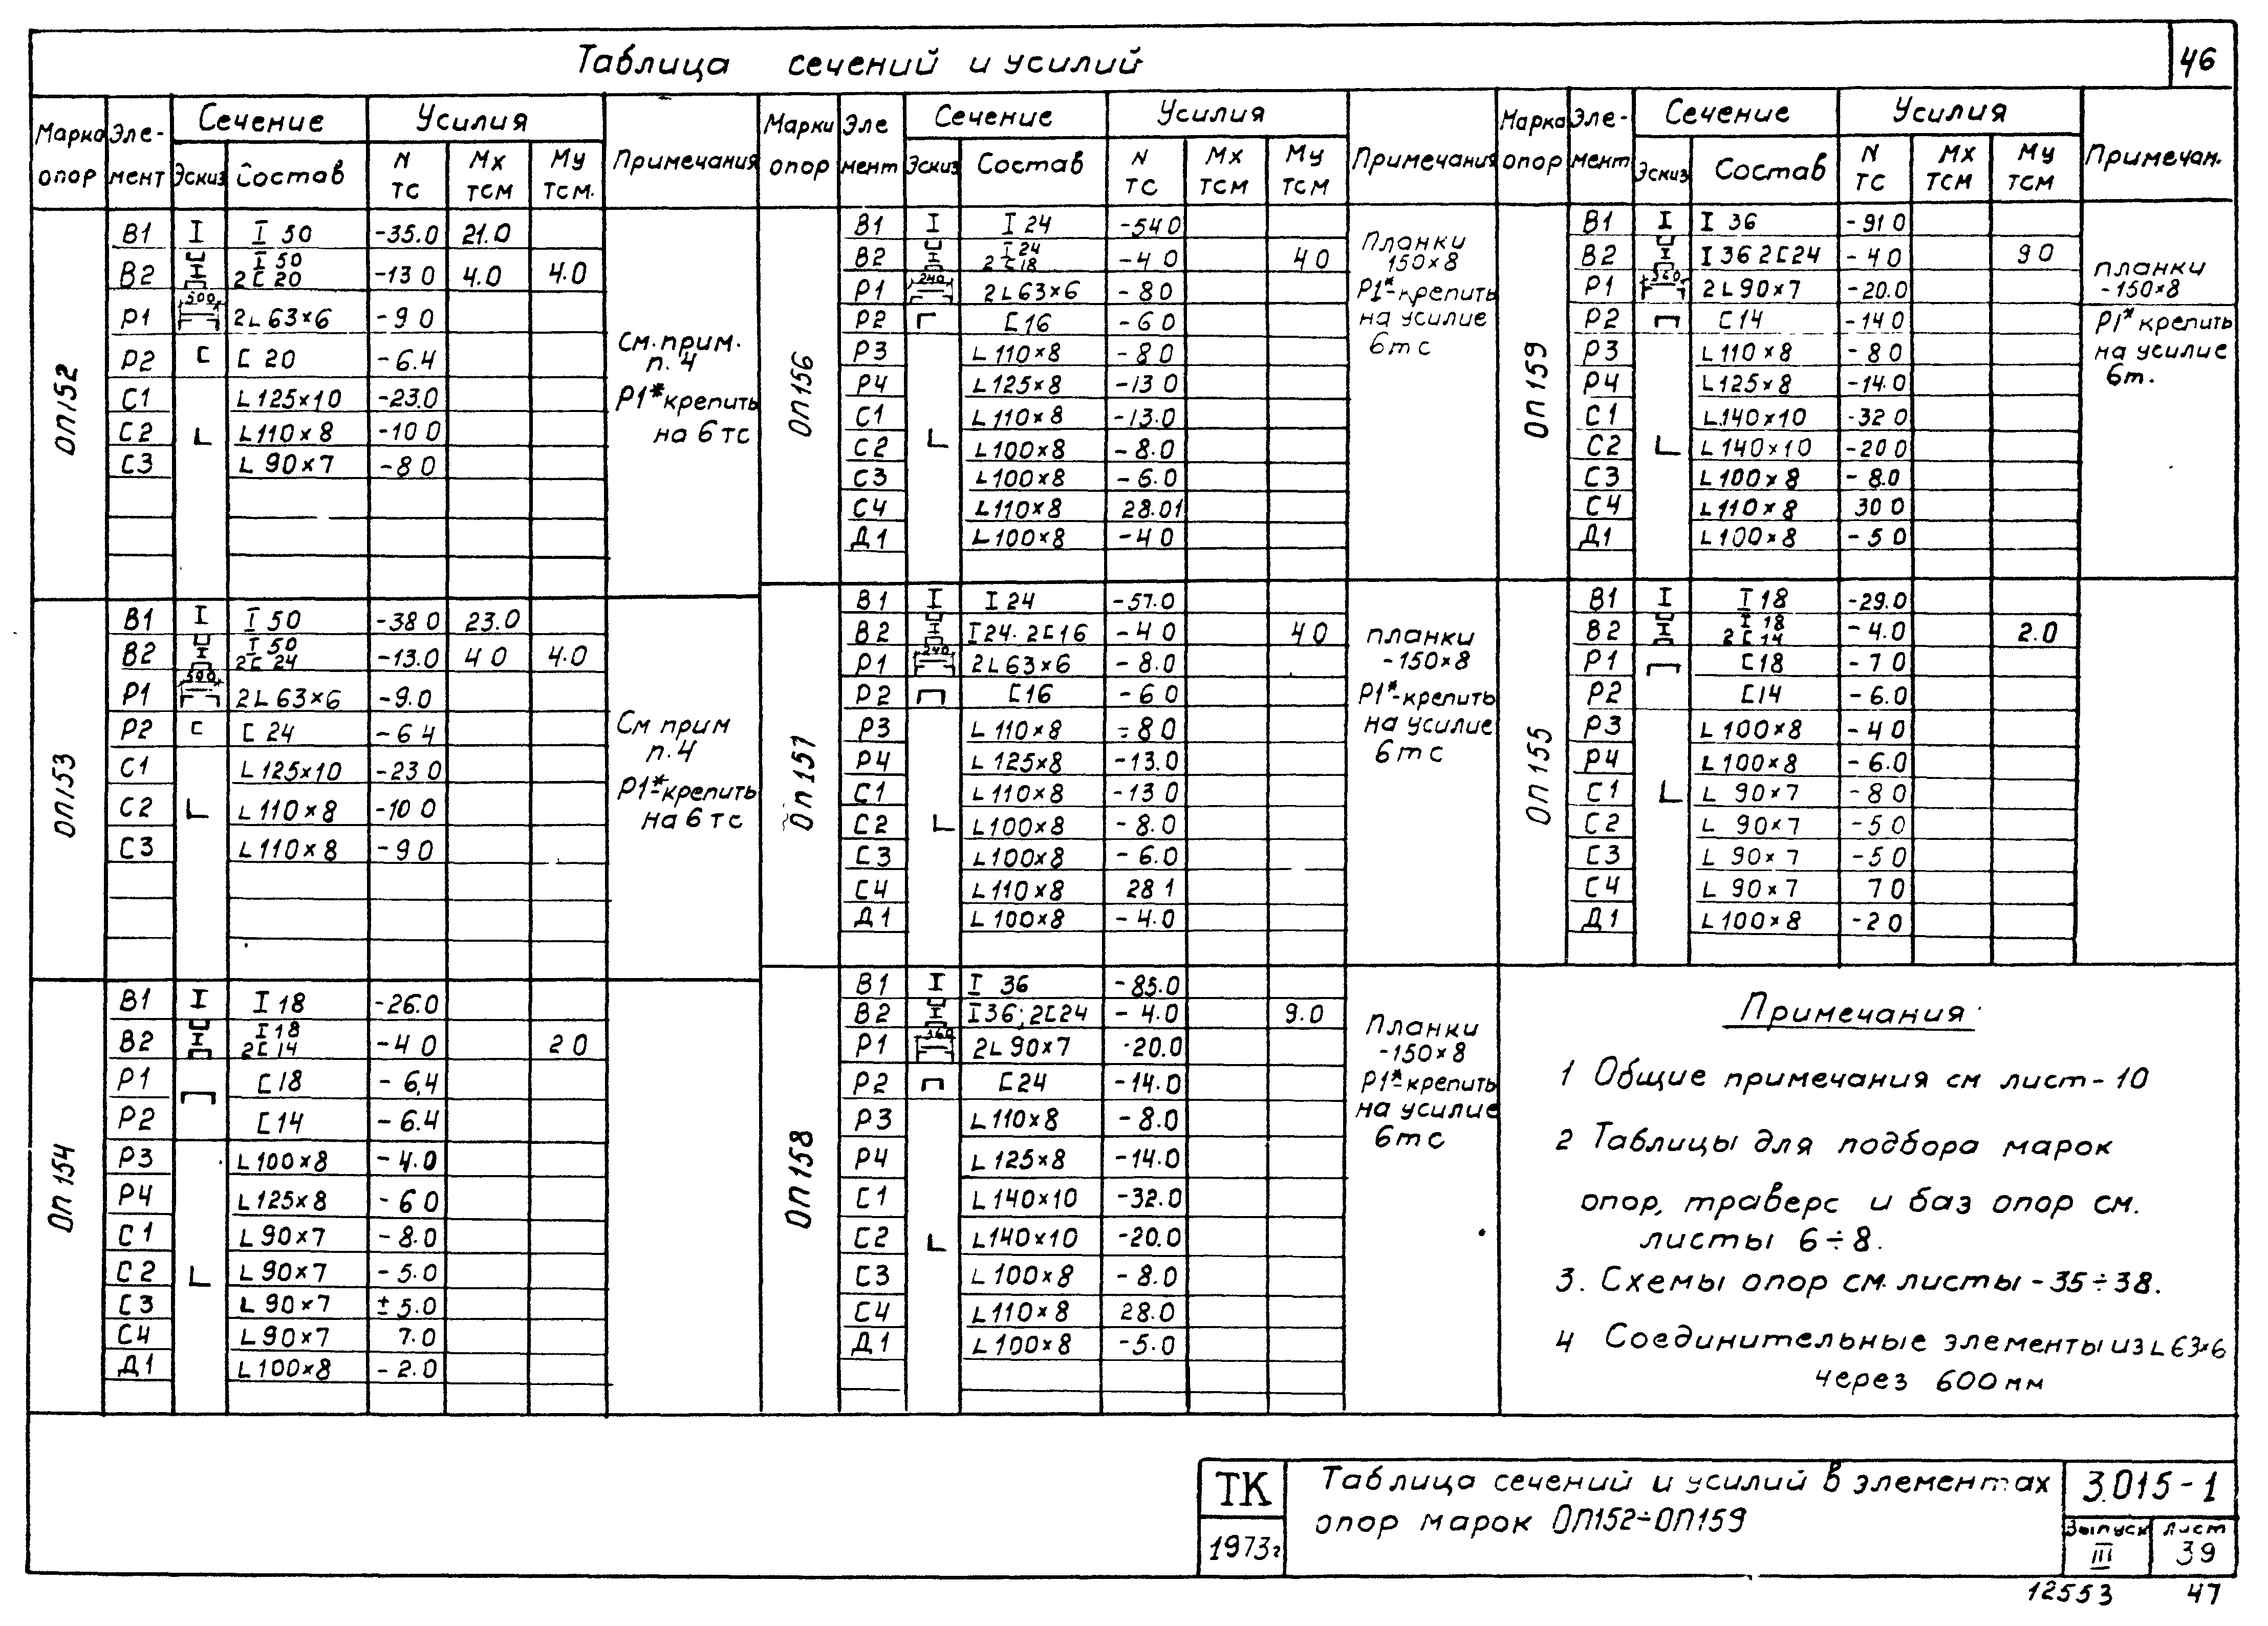 Таблица сечений и усилий
46
Марка опор Эле-мент Сечение Усилия Примечания
Эскиз Состав N тс Mx тсм My тсм.
ОП152
В1 I I 50 -35.0 21.0
В2 I 50 2[20 -13 0 4.0 4.0
Р1 500 2L63×6 -9 0
Р2 [ [ 20 -6.4
С1 L125×10 -23.0
С2 L L110×8 -10 0
С3 L 90×7 -8 0
См. прим. п. 4
Р1* крепить на 6 тс
ОП153
В1 I I 50 -38 0 23.0
В2 I 50 2[ 24 -13.0 4 0 4.0
Р1 500 2L63×6 -9.0
Р2 [ [ 24 -6 4
С1 L125×10 -23 0
С2 L L110×8 -10 0
С3 L110×8 -9 0
См прим п. 4
Р1*-крепить на 6 тс
ОП 154
В1 I I 18 -26.0
В2 I 18 2[ 14 -4 0 2 0
Р1 [18 - 6,4
Р2 [14 - 6.4
Р3 L100×8 - 4.0
Р4 L125×8 - 6 0
С1 L90×7 - 8.0
С2 L L90×7 - 5.0
С3 L 90×7 ± 5.0
С4 L90×7 7.0
Д1 L100×8 - 2.0
Марки опор Эле мент Сечение Усилия Примечания
Эскиз Состав N тс Mx тсм My тсм
ОП 156
В1 I I 24 -54 0
В2 I 24 2[18 -4 0 4 0
Р1 240 2L63×6 - 8 0
Р2 [16 - 6 0
Р3 L110×8 - 8 0
Р4 L125×8 -13 0
С1 L110×8 -13.0
С2 L L100×8 - 8.0
С3 L100×8 - 6.0
С4 L110×8 28.01
Д1 L100×8 -4 0
Планки 150×8
Р1*-крепить на усилие 6тс
ОП 157
В1 I I 24 -57.0
В2 I24. 2[16 - 4 0 4 0
Р1 240 2L63×6 - 8.0
Р2 [16 - 6 0
Р3 L110×8 - 8 0
Р4 L125×8 -13.0
С1 L110×8 -13 0
С2 L L100×8 - 8.0
С3 L100×8 - 6.0
С4 L110×8 28 1
Д1 L100×8 - 4.0
планки -150×8
Р1*-крепить на усилие 6тс
ОП 158
В1 I I 36 -85.0
В2 I36; 2[24 - 4.0 9.0
Р1 360 2L90×7 -20.0
Р2 [24 -14.0
Р3 L110×8 - 8.0
Р4 L125×8 -14.0
С1 L140×10 -32.0
С2 L L140×10 -20.0
С3 L100×8 - 8.0
С4 L110×8 28.0
Д1 L100×8 -5.0
Планки -150×8
Р1*-крепить на усилие 6тс
Марка опор Эле-мент Сечение Усилия Примечан.
Эскиз Состав N тс Mx тсм My тсм
ОП 159
В1 I I 36 -91 0
В2 I 36 2[24 - 4 0 9 0
Р1 360 2L90×7 -20.0
Р2 [14 -14 0
Р3 L110×8 - 8 0
Р4 L125×8 -14.0
С1 L140×10 -32 0
С2 L L140×10 -20 0
С3 L100×8 - 8.0
С4 L110×8 30 0
Д1 L100×8 - 5 0
планки -150×8
Р1* крепить на усилие 6т.
ОП 155
В1 I I 18 -29.0
В2 I 18 2[ 14 - 4.0 2.0
Р1 [18 - 7 0
Р2 [14 - 6.0
Р3 L100×8 - 4 0
Р4 L100×8 - 6.0
С1 L L 90×7 - 8 0
С2 L 90×7 -5 0
С3 L 90×7 -5 0
С4 L 90×7 7 0
Д1 L100×8 -2 0
Примечания
1 Общие примечания см лист-10
2 Таблицы для подбора марок
опор, траверс и баз опор см.
листы 6÷8.
3. Схемы опор см. листы -35÷38.
4 Соединительные элементы из L63×6
через 600мм
ТК
1973г
Таблица сечений и усилий в элементах
опор марок ОП152÷ОП159
3.015-1
Выпуск III
Лист 39
12553 47